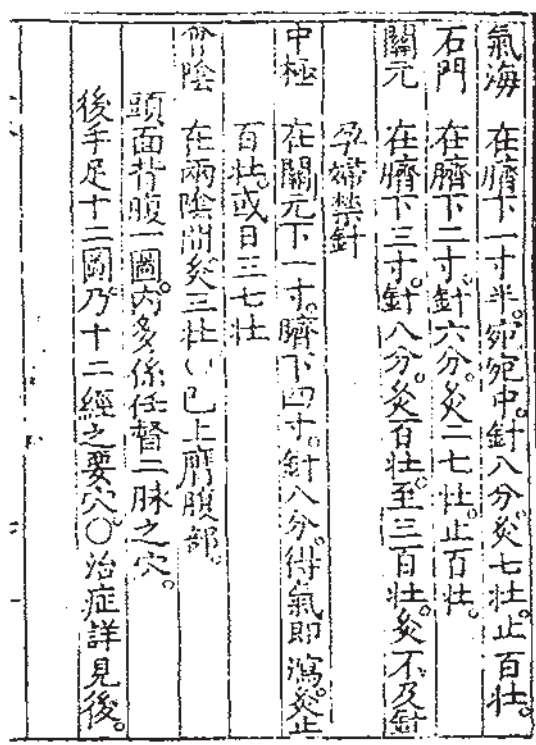 氣海　在臍下一寸半。宛宛中。針八分。灸七壯。止百壯。
石門　在臍下二寸。針六分。灸二七壯。止百壯。
關元　在臍下三寸。針八分。灸百壯。至三百壯。灸不及針
孕婦禁針
中極　在關元下一寸。臍下四寸。針八分。得氣即瀉。灸止
百壯。或日三七壯
會陰　在兩陰間灸三壯〇已上膺腹部。
頭面背腹一圖。內多係任督二脉之穴。
後手足十二圖乃十二經之要穴。〇治症詳見後。